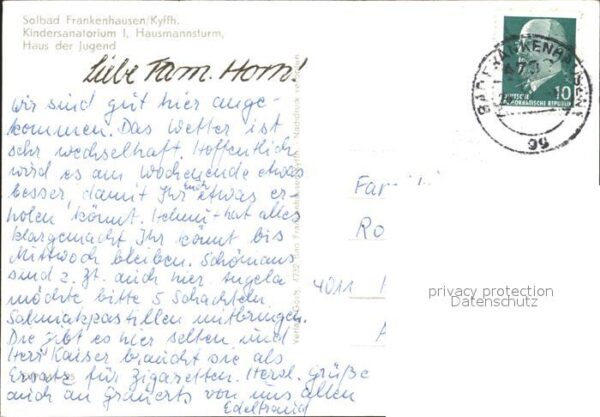 Solbad Frankenhausen/Kyffh.
Kindersanatorium I, Hausmannsturm,
Haus der Jugend
Liebe Fam. Horn!
wir sind gut hier ange-
kommen. Das Wetter ist
sehr wechselhaft. Hoffentlich
wird es am Wochenende etwas
besser, damit Ihr euch etwas er-
holen könnt. Helmi hat alles
klargemacht Ihr könnt bis
Mittwoch bleiben. Schömans
sind z. Zt. auch hier. Angela
möchte bitte 5 Schachteln
Salmiakpastillen mitbringen.
Die gibt es hier selten und
Herr Kaiser braucht sie als
Ersatz für Zigaretten. Herzl. Grüße
auch an Grunerts von uns allen
Edeltraud
Fa
Ro
4011
BAD FRANKENHAUSEN
99
10
DEUTSCHE
DEMOKRATISCHE REPUBLIK
privacy protection
Datenschutz